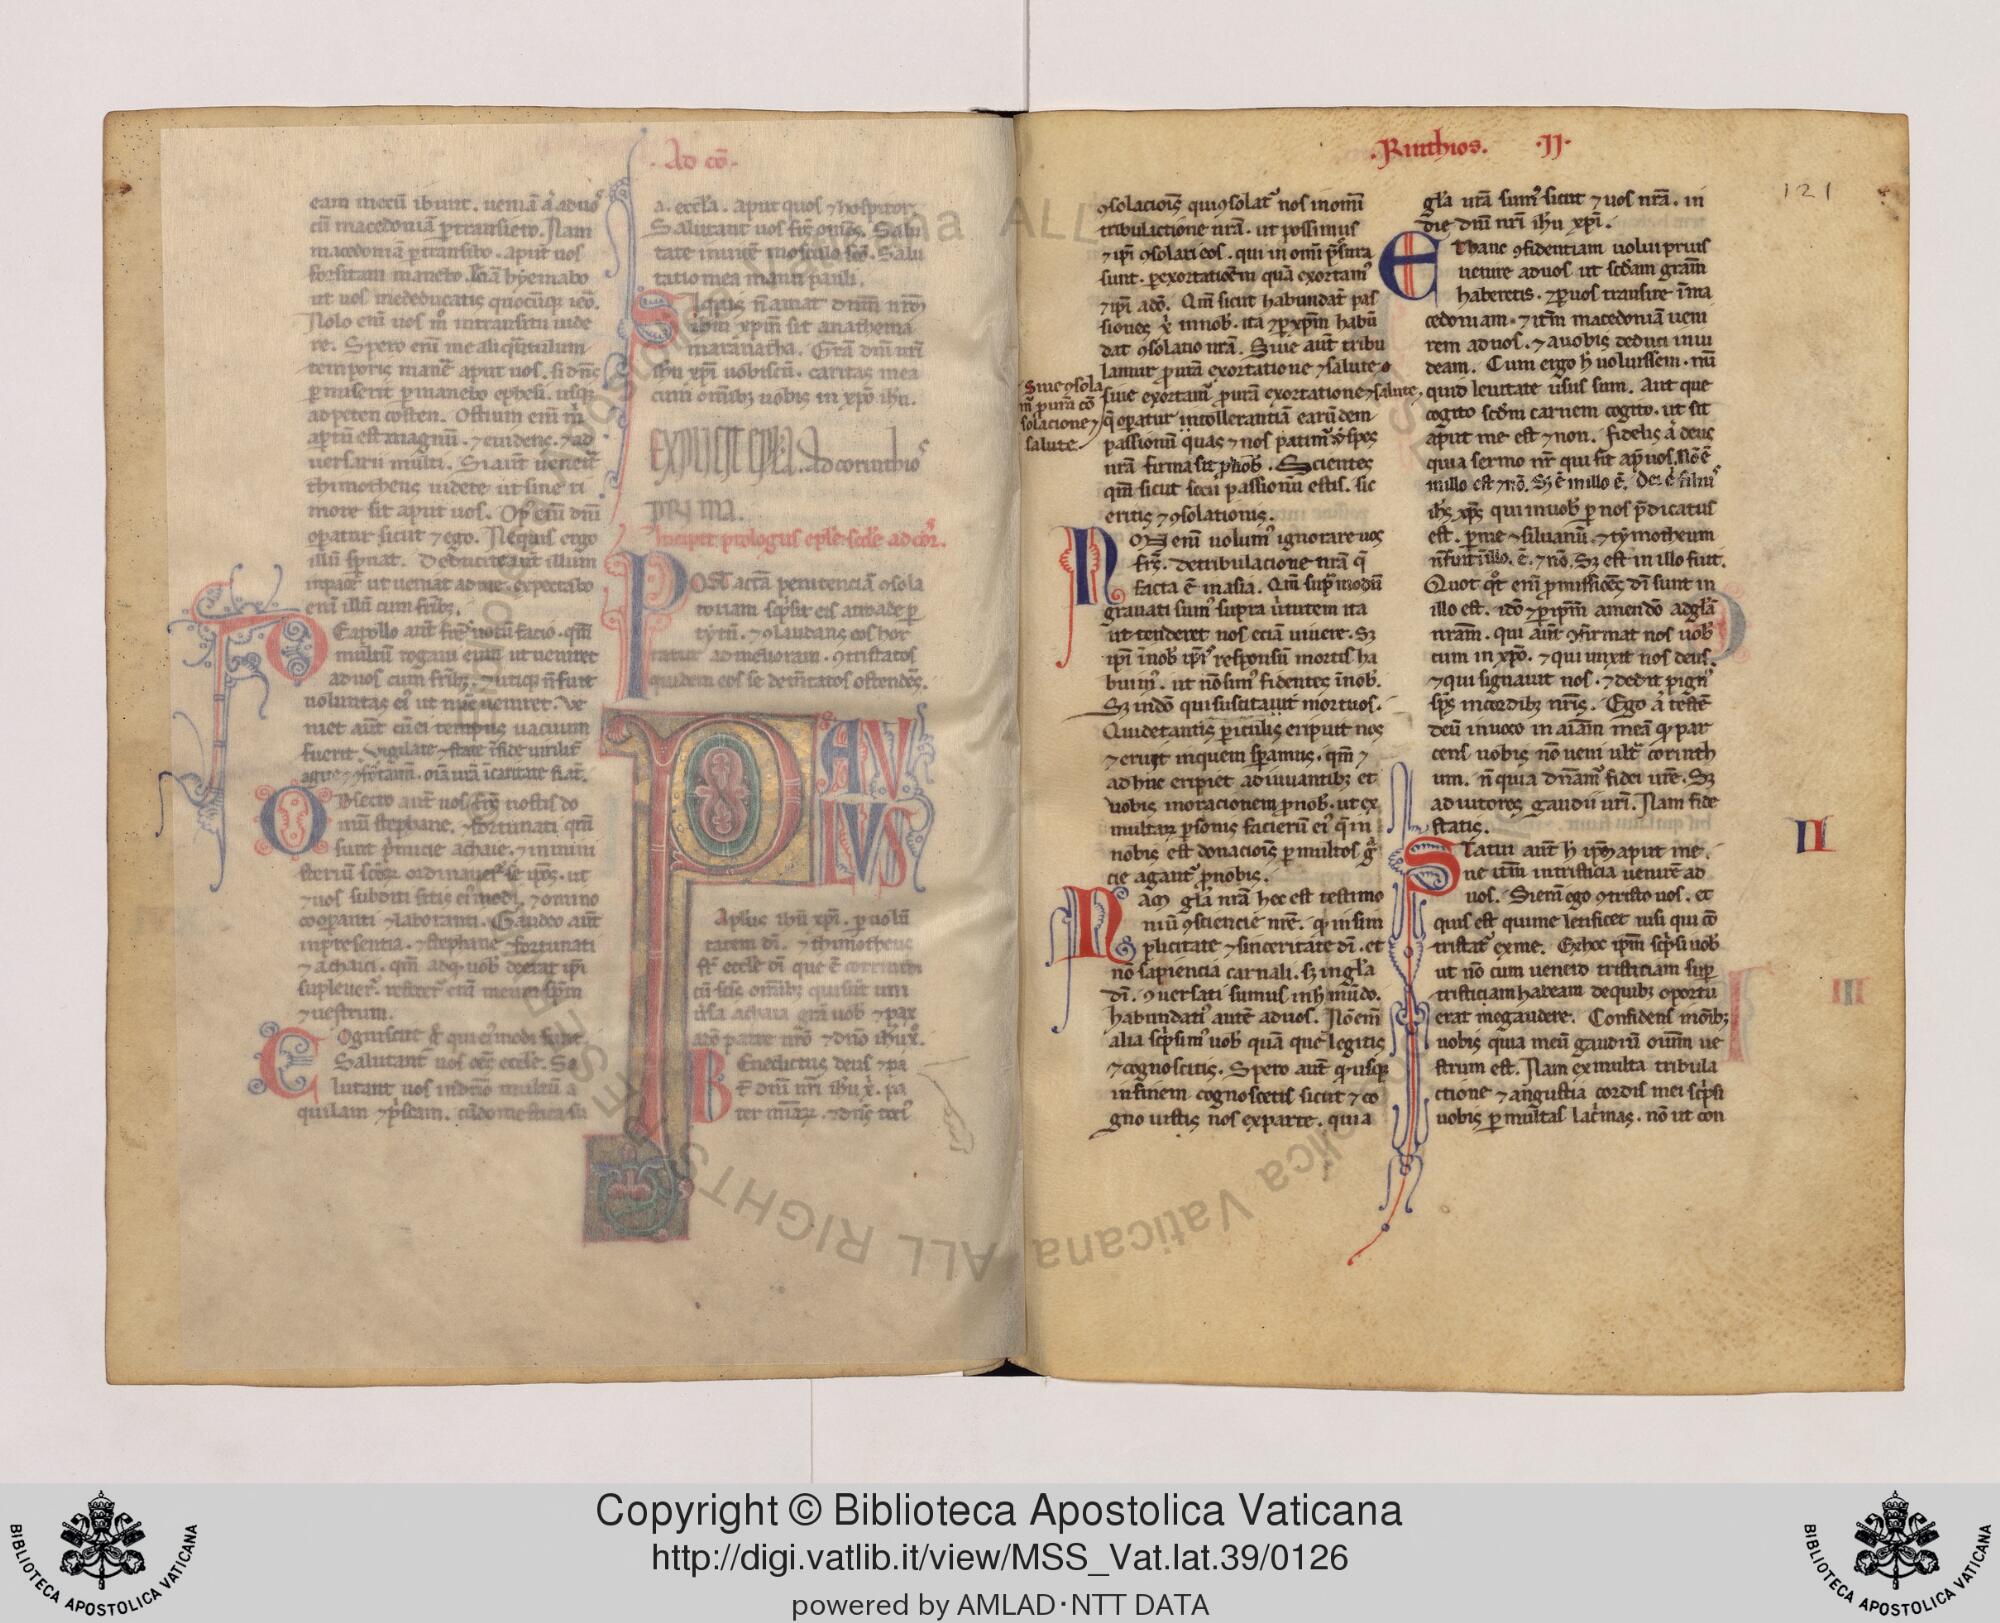 · Ad co᷃ ·
eam mecū ibunt. ueniā
cū macedoniā ꝑtransiero. Nam
macedoniā ꝑtransibo. aput uos
forsitan manebo.
ut uos me deducatis quocūqꝫ
Nolo eni᷃ uos in transitu uide
re. Spero eni᷃ me
temporis aput uos. si dn᷃s
ꝑmiserit ꝑmanebo ephesi. usqꝫ
ad pentecosten. Ostium eni᷃ m̍
aꝑtū est magnū. ⁊ euidens. ⁊ ad
uersarii multi. Si aut᷃
thimotheus uidete ut sine ti
more sit aput uos. Op᷒ eni᷃ dn᷃i
oꝑatur sicut ⁊ ego. Ne quis ergo
illū sp̲nat. Deducite aut᷃ illum
in pace ut ueniat ad me. expecto
eni᷃ illū cum fr᷃ibꝫ.
De apollo aut᷃ notū facio. qm᷃
multū rogaui eum ut ueniret
ad uos cum fr᷃ibꝫ. ⁊ utiqꝫ n᷃ fuit
uoluntas ei᷒ ut nūc ueniret. Ve
niet aut᷃ cū ei tempus uacuum
fuerit. Vigilate ⁊ state
Obsecro aut᷃ uos nostis do
mū stephane. ⁊ fortunati qm᷃
sunt achaie. ⁊ in mini
steriū
⁊ uos subditi sitis ⁊ omni
cooꝑanti ⁊ laboranti. Gaudeo aut᷃
in presentia. ⁊ stephane ⁊ fortunati
⁊ achaici. qm᷃
supleuer᷒. eni᷃ meum sp᷃m
⁊ uestrum.
Cognoscite
Salutant uos ecclē. Sa
lutant uos in dn᷃o multū a
quila cū domestica su
a. eccl᷃a. aput quos ⁊ hospitor
Salutant uos Salu
tate inuicē in osculo sc᷃o. Salu
tatio mea manu pauli.
Siquis n᷃ amat
sit anathema
maranatha. Grā dn᷃i nr᷃i
ih᷃u xp᷃i uobiscū. caritas mea
cum om᷃ibꝫ uobis in xp᷃o ih᷃u.
EXPLICIT EPL᷃A. ad corinthio᷒
pri ma.
Incipit prologus ep᷃le sc᷃de ad cor᷒.
Post actā penitenciā ɔsola
toriam sc̍psit eis a troade ꝑ
tytū. ⁊ ɔlaudans eos hor
tatur ad meliora. ɔtristatos
quidem eos sed em᷃datos ostendēs.
PAVLVS
Aplus ih᷃u xp᷃i. ꝑ uolū
tatem di᷃. ⁊ thimotheus
fr᷃ eccl᷃e di᷃ que ē corinthi
cū sc᷃is om᷃ibꝫ qui sūt in uni
u̍sa achaia grā uob᷒ ⁊ pax
a do᷃ patre nr᷃o ⁊ dn᷃o ih᷃u x᷃.
Benedictus deus ⁊ pa
t᷃ dn᷃i nr᷃i ih᷃u x᷃. pa
ter
· Rinthios · · II ·
121
ɔsolaciois᷃ qui ɔsolat᷒ nos in om᷃i
tribulactione nrā. ut possimus
⁊ ip᷃i ɔsolari eos. qui in om᷃i p̄ssura
sunt. ꝑ exortatiōem quā exortam᷒
⁊ ip᷃i a do᷃. Qm᷃ sicut habundāt pas
siones x᷃ in nob᷒. ita ⁊ ꝑ xp᷃m habū
dat ɔsolatio nrā. Siue aut᷃ tribu
lamur ꝓ urā exortatione ⁊ salute
siue exortam᷒ ꝓ urā exortatione ⁊ salute,
Siue ɔsola
m᷒ ꝓ urā cō
solacione ⁊
salute.
q̄ oꝑatur intollerantiā earū dem
passionū quas ⁊ nos patim᷒ ⁊ spes
nrā firma sit ꝓ uob᷒. Scientes
qm᷃ sicut socii passionū estis. sic
eritis ⁊ ɔsolationis.
Non eni᷃ uolum᷒ ignorare uos
fr᷃s. de tribulacione nrā q̄
facta ē in asia. Qm᷃ sup̱ modū
grauati sum᷒ supra u̍tutem ita
ut tenderet nos eciā uiuere. Sꝫ
ip᷃i in nob᷒ ip᷃is responsū mortis ha
buim᷒. ut nō sim᷒ fidentes in nob᷒.
Sꝫ in dō qui suscitauit mortuos.
Qui de tantis ꝑiculis eripuit nos
⁊ eruit in quem sꝑamus. qm᷃ ⁊
adhuc eripiet adiuuantibꝫ et
uobis in oracionem ꝓ nob᷒. ut ex
multarꝫ ꝑsonis facierū ei᷒ q̄ in
nobis est donaciois᷃ ꝑ multos gr̄
cie agant᷒ ꝓ nobis.
Nam gl᷃a nrā hec est testimo
niū ɔsciencie nrē. qꝫ in sim
plicitate ⁊ sinceritate di᷃. et
nō sapiencia carnali. sꝫ in gl᷃a
di᷃. ɔuersati sumus in h᷒ mūdo.
habundati᷒ autē ad uos. Nō em᷃
alia sc̍psim᷒ uob᷒ quā que legitis
⁊ cognoscitis. Spero aut᷃ qꝫ usqꝫ
in finem cognoscetis sicut ⁊ co
gnouistis nos ex parte. quia
gl᷃a urā sum᷒ sicut ⁊ uos nrā. in
die dn᷃i nr᷃i ih᷃u xp᷃i.
Et hanc ɔfidentiam uolui prius
uenire ad uos ut sc᷃dam gram᷃
haberetis. ⁊ ꝑ uos transire ī ma
cedoniam. ⁊ itm᷃ macedoniā ueni
rem ad uos. ⁊ a uobis deduci in iu
deam. Cum ergo h᷒ uoluissem. nū
quid leuitate u̍sus sum. Aut que
cogito sc᷃dm carnem cogito. ut sit
aput me est ⁊ non. Fidelis a̍ deus
quia sermo nr᷃ qui fit ap᷒ uos. nō ē
in illo est ⁊ nō. Sꝫ ē in illo ē. Dei ē fili᷒
ih᷃s xp᷃s qui in uob᷒ ꝑ nos p̄dicatus
est. ꝑ me ⁊ siluanū. ⁊ tymotheum
n᷃ fuit in illo. ē. ⁊ nō. Sꝫ est in illo fuit.
Quot qͦt eni᷃ ꝓmissiōes di᷃ sunt in
illo est. idō ⁊ ꝑ ip᷃m amen dō ad gl᷃a
nram᷃. qui aut᷃ ɔfirmat nos uob᷒
cum in xp᷃o. ⁊ qui unxit nos deus.
⁊ qui signauit nos. ⁊ dedit pign᷒
sp᷃s in cordibꝫ nr᷃is. Ego a̍ testē
deū inuoco in aiam᷃ meā qꝫ par
cens uobis nō ueni ult᷒ corinth
um. n᷃ quia dn᷃am᷒ fidei ure᷃. Sꝫ
adiutores gaudii ur᷃i. Nam fide
statis.
II
Statui aut᷃ h᷒ ip᷃m aput me.
ne itm᷃ in tristicia uenire ad
uos. Si eni᷃ ego ɔtristo uos. et
quis est qui me letificet nisi qui cō
tristat᷒ ex me. Et hoc ip᷃m sc̍psi uob᷒
ut nō cum uenero tristiciam sup̱
tristiciam habeam de quibꝫ oportu
erat me gaudere. Confidens in om᷃ibꝫ
uobis quia meū gaudiū omniū ue
strum est. Nam ex multa tribula
ctione ⁊ angustia cordis mei sc̍psi
uobis ꝑ multas lac̍mas. nō ut con
Copyright © Biblioteca Apostolica Vaticana
http://digi.vatlib.it/view/MSS_Vat.lat.39/0126
powered by AMLAD·NTT DATA
BIBLIOTECA APOSTOLICA VATICANA
BIBLIOTECA APOSTOLICA VATICANA